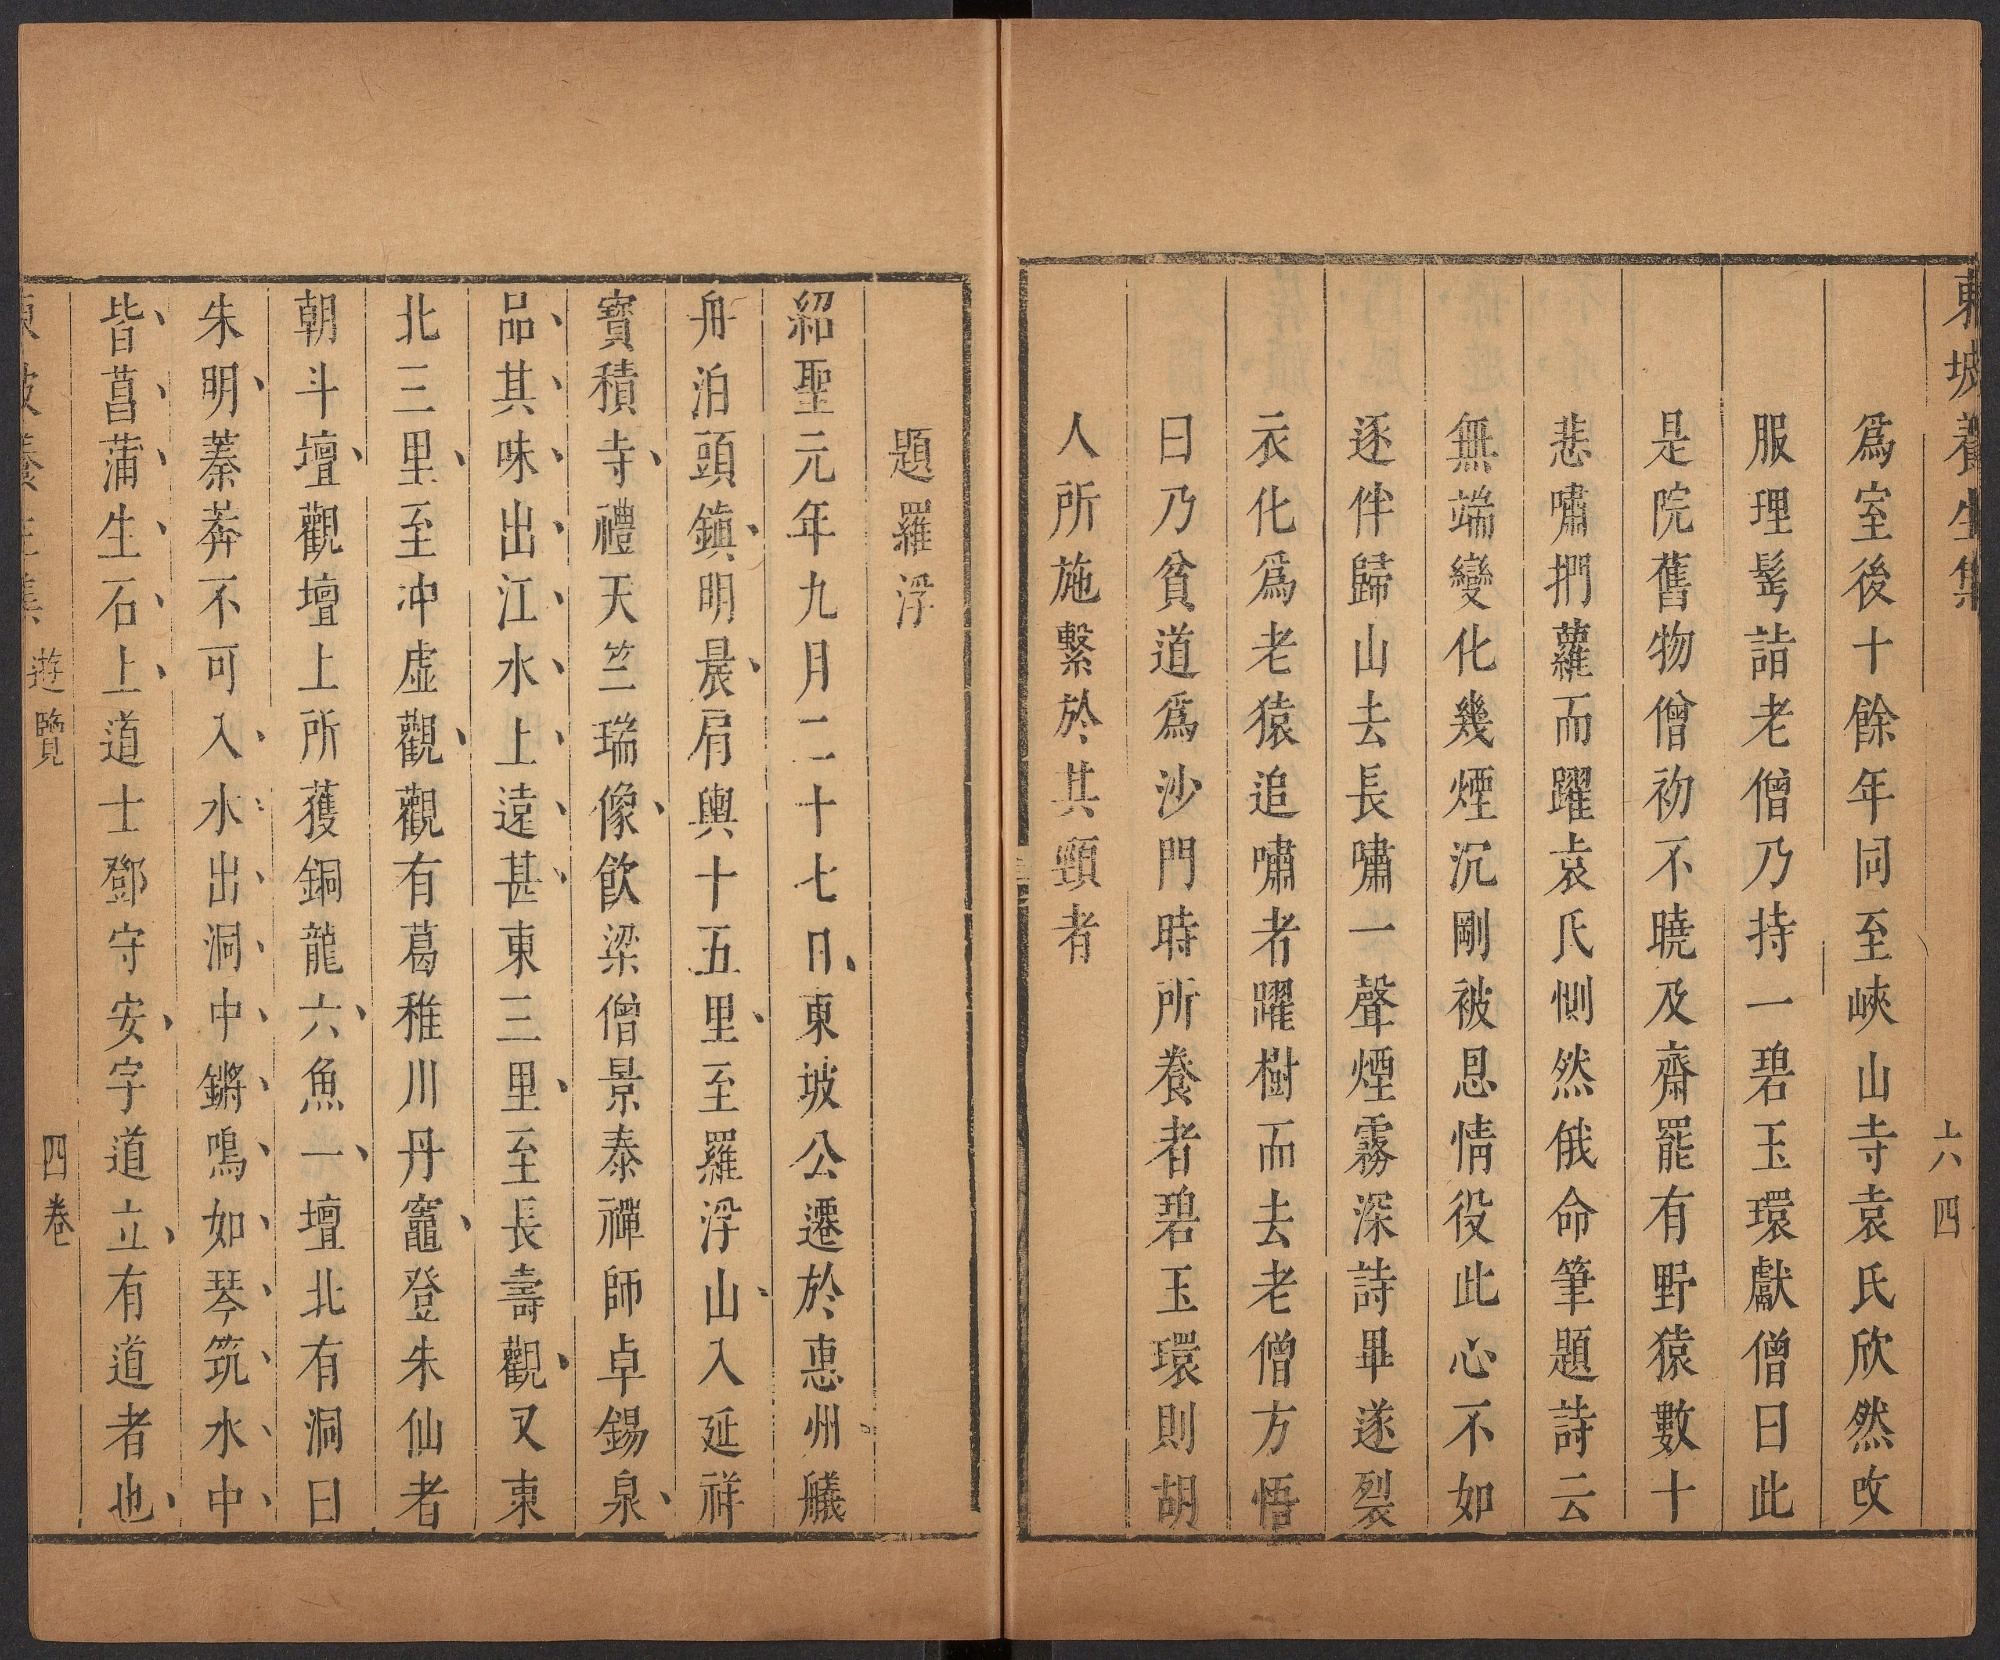 東坡養生集 六四
爲室後十餘年同至峽山寺袁氏欣然改
服理髩詣老僧乃持一碧玉環獻僧曰此
是院舊物僧初不曉及齋罷有野猿數十
悲嘯捫蘿而躍袁氏惻然俄命筆題詩云
無端變化幾煙沉剛被恩情役此心不如
逐伴歸山去長嘯一聲煙霧深詩畢遂裂
衣化爲老猿追嘯者躍樹而去老僧方悟
曰乃貧道爲沙門時所養者碧玉環則胡
人所施繫於其頸者
題羅浮
紹聖元年九月二十七日、東坡公遷於惠州艤
舟泊頭鎮、明晨、肩輿十五里、至羅浮山、入延祥
寶積寺、禮天竺瑞像、飲梁僧景泰禪師卓錫泉、
品、其、味、出、江、水、上、遠、甚、東三里、至長壽觀、又東
北三里、至冲虛觀、觀有葛稚川丹竈、登朱仙者
朝斗壇、觀壇上所獲銅龍六、魚一、壇北有洞曰
朱明、蓁莽不可入、水、出、洞、中、鏘、鳴、如、琴、筑、水、中、
皆、菖、蒲、生、石、上、道士鄧守安、字道立、有道者也、
東坡養生集 遊覽 四卷